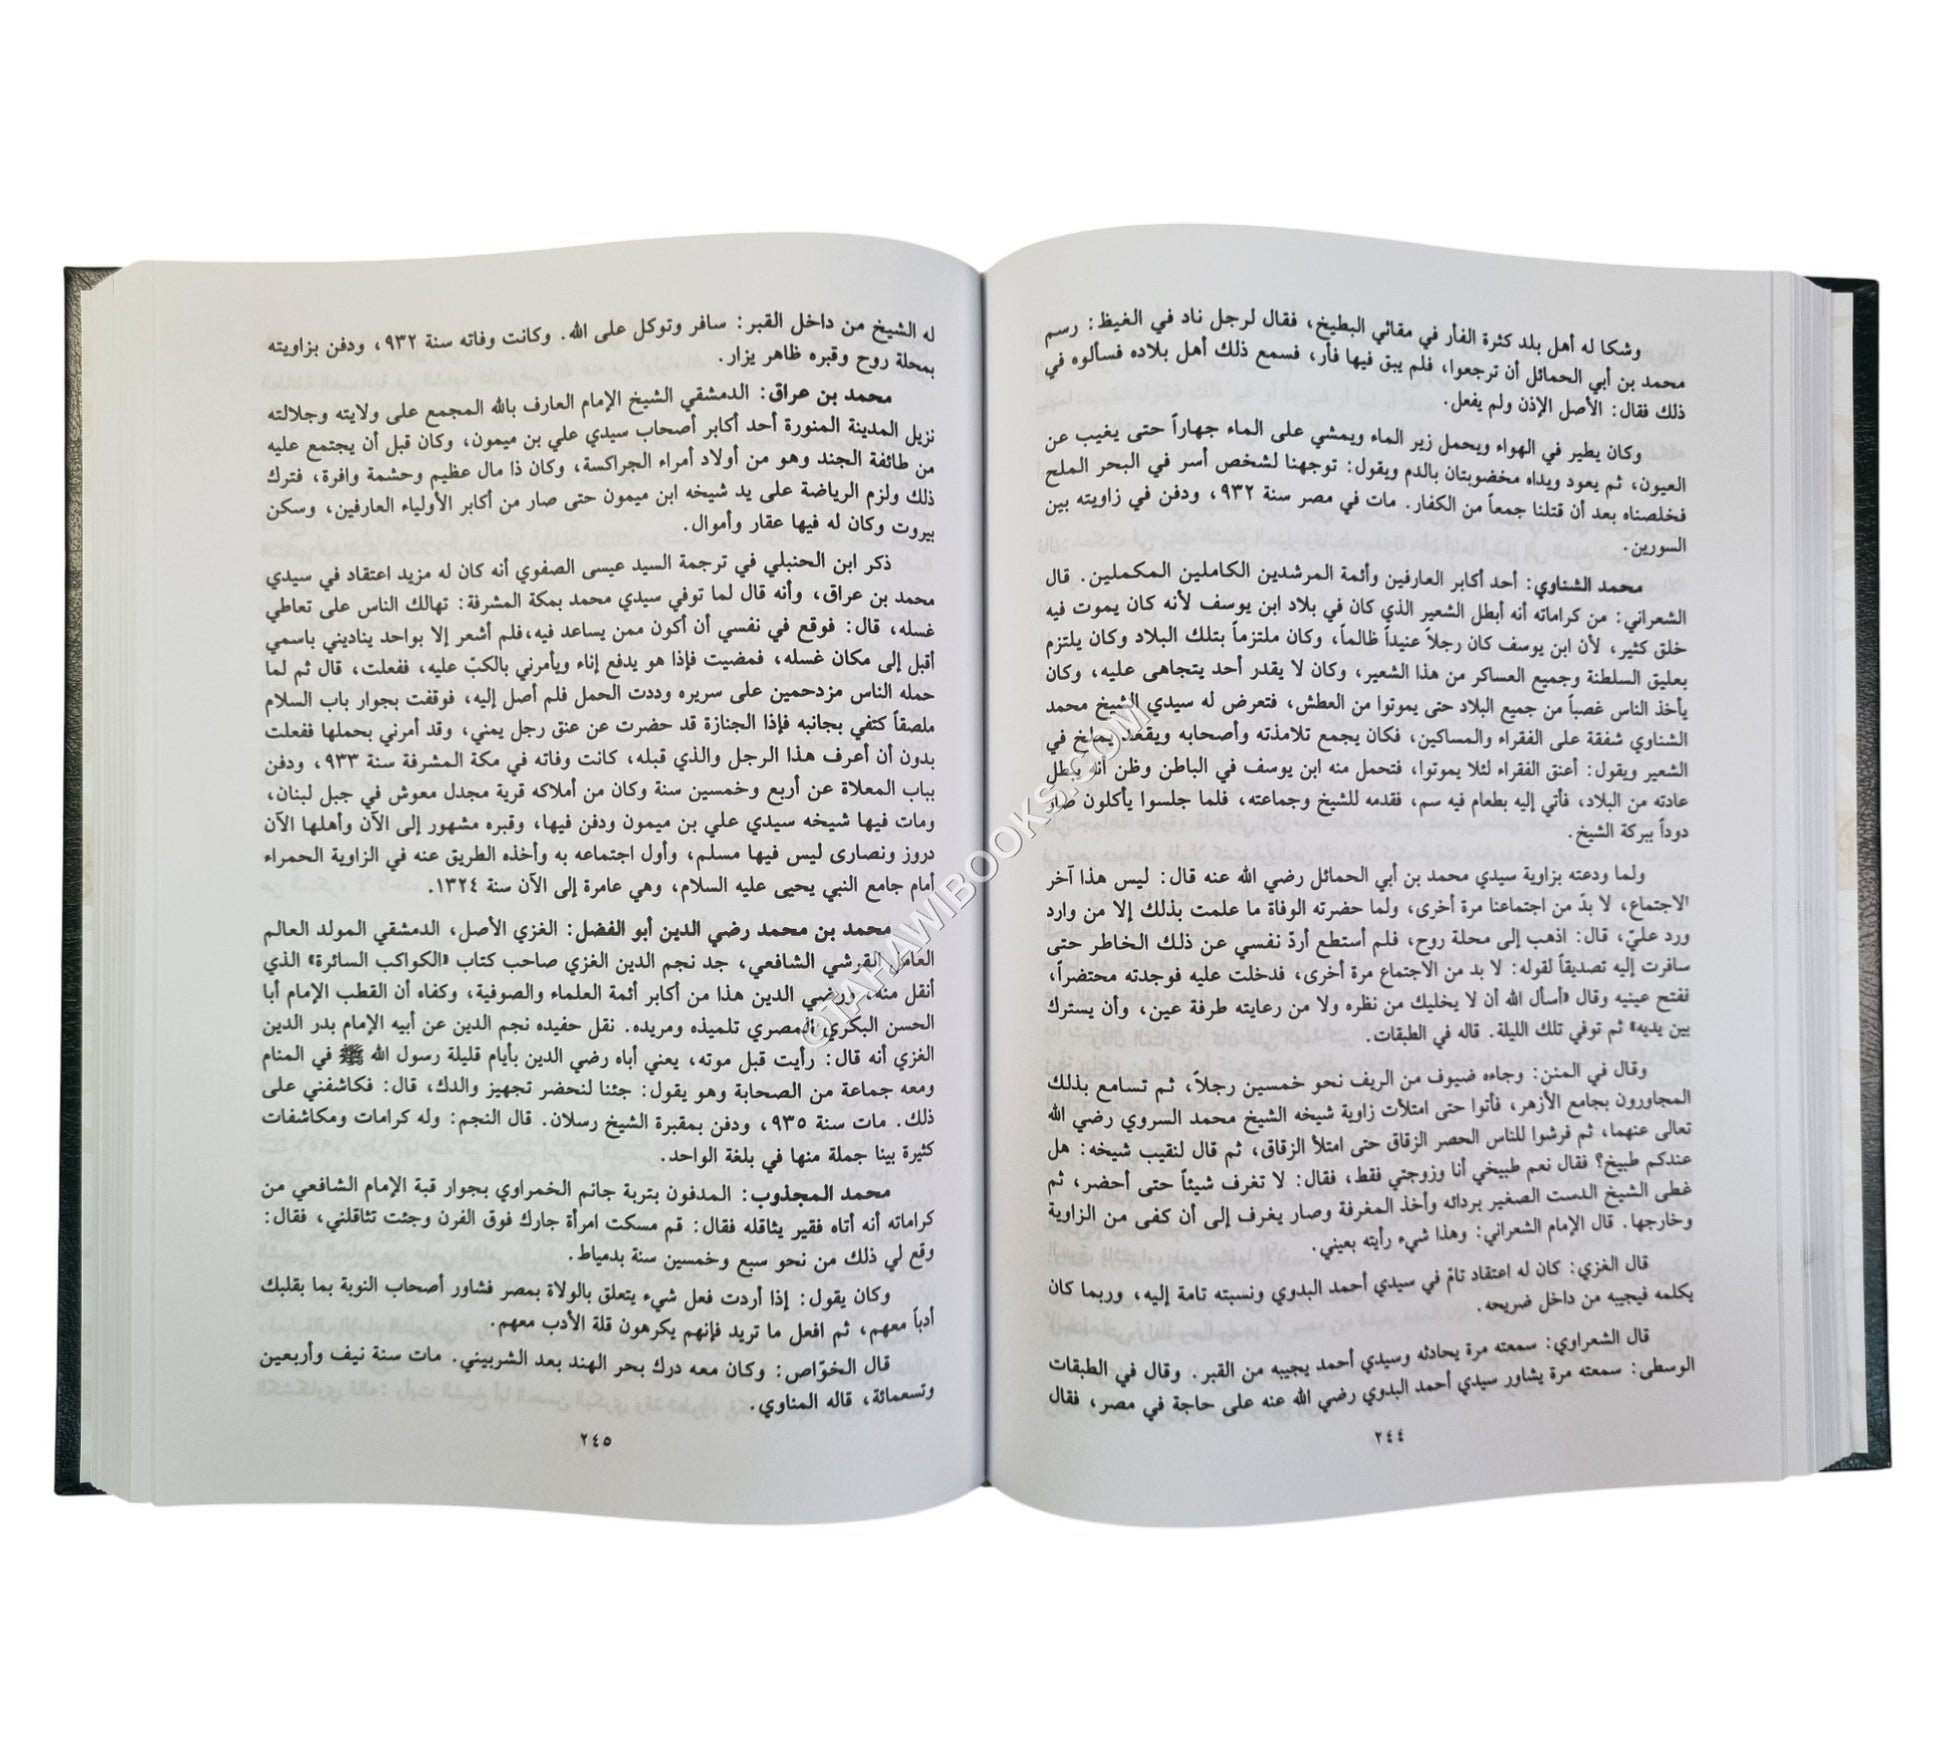 وشكا له أهل بلد كثرة الفأر في مقاثي البطيخ، فقال لرجل ناد في الغيظ: رسم
محمد بن أبي الحمائل أن ترجعوا، فلم يبق فيها فأر، فسمع ذلك أهل بلاده فسألوه في
ذلك فقال: الأصل الإذن ولم يفعل.
وكان يطير في الهواء ويحمل زير الماء ويمشي على الماء جهاراً حتى يغيب عن
العيون، ثم يعود ويداه مخضوبتان بالدم ويقول: توجهنا لشخص أسر في البحر الملح
فخلصناه بعد أن قتلنا جمعاً من الكفار. مات في مصر سنة ٩٣٢، ودفن في زاويته بين
السورين.
محمد الشناوي: أحد أكابر العارفين وأئمة المرشدين الكاملين المكملين. قال
الشعراني: من كراماته أنه أبطل الشعير الذي كان في بلاد ابن يوسف لأنه كان يموت فيه
خلق كثير، لأن ابن يوسف كان رجلاً عنيداً ظالماً، وكان ملتزماً بتلك البلاد وكان يلتزم
بعليق السلطنة وجميع العساكر من هذا الشعير، وكان لا يقدر أحد يتجاهى عليه، وكان
يأخذ الناس غصباً من جميع البلاد حتى يموتوا من العطش، فتعرض له سيدي الشيخ محمد
الشناوي شفقة على الفقراء والمساكين، فكان يجمع تلامذته وأصحابه ويقعد يملخ في
الشعير ويقول: أعتق الفقراء لئلا يموتوا، فتحمل منه ابن يوسف في الباطن وظن أنه يبطل
عادته من البلاد، فأتي إليه بطعام فيه سم، فقدمه للشيخ وجماعته، فلما جلسوا يأكلون صار
دوداً ببركة الشيخ.
ولما ودعته بزاوية سيدي محمد بن أبي الحمائل رضي الله عنه قال: ليس هذا آخر
الاجتماع، لا بدّ من اجتماعنا مرة أخرى، ولما حضرته الوفاة ما علمت بذلك إلا من وارد
ورد عليّ، قال: اذهب إلى محلة روح، فلم أستطع أردّ نفسي عن ذلك الخاطر حتى
سافرت إليه تصديقاً لقوله: لا بد من الاجتماع مرة أخرى، فدخلت عليه فوجدته محتضراً،
ففتح عينيه وقال «أسأل الله أن لا يخليك من نظره ولا من رعايته طرفة عين، وأن يسترك
بين يديه» ثم توفي تلك الليلة. قاله في الطبقات.
وقال في المنن: وجاءه ضيوف من الريف نحو خمسين رجلاً، ثم تسامع بذلك
المجاورون بجامع الأزهر، فأتوا حتى امتلأت زاوية شيخه الشيخ محمد السروي رضي الله
تعالى عنهما، ثم فرشوا للناس الحصر الزقاق حتى امتلأ الزقاق، ثم قال لنقيب شيخه: هل
عندكم طبيخ؟ فقال نعم طبيخي أنا وزوجتي فقط، فقال: لا تغرف شيئاً حتى أحضر، ثم
غطى الشيخ الدست الصغير بردائه وأخذ المغرفة وصار يغرف إلى أن كفى من الزاوية
وخارجها. قال الإمام الشعراني: وهذا شيء رأيته بعيني.
قال الغزي: كان له اعتقاد تامّ في سيدي أحمد البدوي ونسبته تامة إليه، وربما كان
يكلمه فيجيبه من داخل ضريحه.
قال الشعراوي: سمعته مرة يحادثه وسيدي أحمد يجيبه من القبر. وقال في الطبقات
الوسطى: سمعته مرة يشاور سيدي أحمد البدوي رضي الله عنه على حاجة في مصر، فقال
٢٤٤
له الشيخ من داخل القبر: سافر وتوكل على الله. وكانت وفاته سنة ٩٣٢، ودفن بزاويته
بمحلة روح وقبره ظاهر يزار.
محمد بن عراق: الدمشقي الشيخ الإمام العارف بالله المجمع على ولايته وجلالته
نزيل المدينة المنورة أحد أكابر أصحاب سيدي علي بن ميمون، وكان قبل أن يجتمع عليه
من طائفة الجند وهو من أولاد أمراء الجراكسة، وكان ذا مال عظيم وحشمة وافرة، فترك
ذلك ولزم الرياضة على يد شيخه ابن ميمون حتى صار من أكابر الأولياء العارفين، وسكن
بيروت وكان له فيها عقار وأموال.
ذكر ابن الحنبلي في ترجمة السيد عيسى الصفوي أنه كان له مزيد اعتقاد في سيدي
محمد بن عراق، وأنه قال لما توفي سيدي محمد بمكة المشرفة: تهالك الناس على تعاطي
غسله، قال: فوقع في نفسي أن أكون ممن يساعد فيه،فلم أشعر إلا بواحد يناديني باسمي
أقبل إلى مكان غسله، فمضيت فإذا هو يدفع إناء ويأمرني بالكبّ عليه، ففعلت، قال ثم لما
حمله الناس مزدحمين على سريره وددت الحمل فلم أصل إليه، فوقفت بجوار باب السلام
ملصقاً كتفي بجانبه فإذا الجنازة قد حضرت عن عنق رجل يمني، وقد أمرني بحملها ففعلت
بدون أن أعرف هذا الرجل والذي قبله، كانت وفاته في مكة المشرفة سنة ٩٣٣، ودفن
بباب المعلاة عن أربع وخمسين سنة وكان من أملاكه قرية مجدل معوش في جبل لبنان،
ومات فيها شيخه سيدي علي بن ميمون ودفن فيها، وقبره مشهور إلى الآن وأهلها الآن
دروز ونصارى ليس فيها مسلم، وأول اجتماعه به وأخذه الطريق عنه في الزاوية الحمراء
أمام جامع النبي يحيى عليه السلام، وهي عامرة إلى الآن سنة ١٣٢٤.
محمد بن محمد رضي الدين أبو الفضل: الغزي الأصل، الدمشقي المولد العالم
العامل القرشي الشافعي، جد نجم الدين الغزي صاحب كتاب «الكواكب السائرة» الذي
أنقل منه، ورضي الدين هذا من أكابر أئمة العلماء والصوفية، وكفاه أن القطب الإمام أبا
الحسن البكري المصري تلميذه ومريده. نقل حفيده نجم الدين عن أبيه الإمام بدر الدين
الغزي أنه قال: رأيت قبل موته، يعني أباه رضي الدين بأيام قليلة رسول الله ﷺ في المنام
ومعه جماعة من الصحابة وهو يقول: جئنا لنحضر تجهيز والدك، قال: فكاشفني على
ذلك. مات سنة ٩٣٥، ودفن بمقبرة الشيخ رسلان. قال النجم: وله كرامات ومكاشفات
كثيرة بينا جملة منها في بلغة الواحد.
محمد المجذوب: المدفون بتربة جانم الخمراوي بجوار قبة الإمام الشافعي من
كراماته أنه أتاه فقير يثاقله فقال: قم مسكت امرأة جارك فوق الفرن وجئت تثاقلني، فقال:
وقع لي ذلك من نحو سبع وخمسين سنة بدمياط.
وكان يقول: إذا أردت فعل شيء يتعلق بالولاة بمصر فشاور أصحاب النوبة بما بقلبك
أدباً معهم، ثم افعل ما تريد فإنهم يكرهون قلة الأدب معهم.
قال الخوّاص: وكان معه درك بحر الهند بعد الشربيني. مات سنة نيف وأربعين
وتسعمائة، قاله المناوي.
٢٤٥
©TAHAWIBOOKS.COM